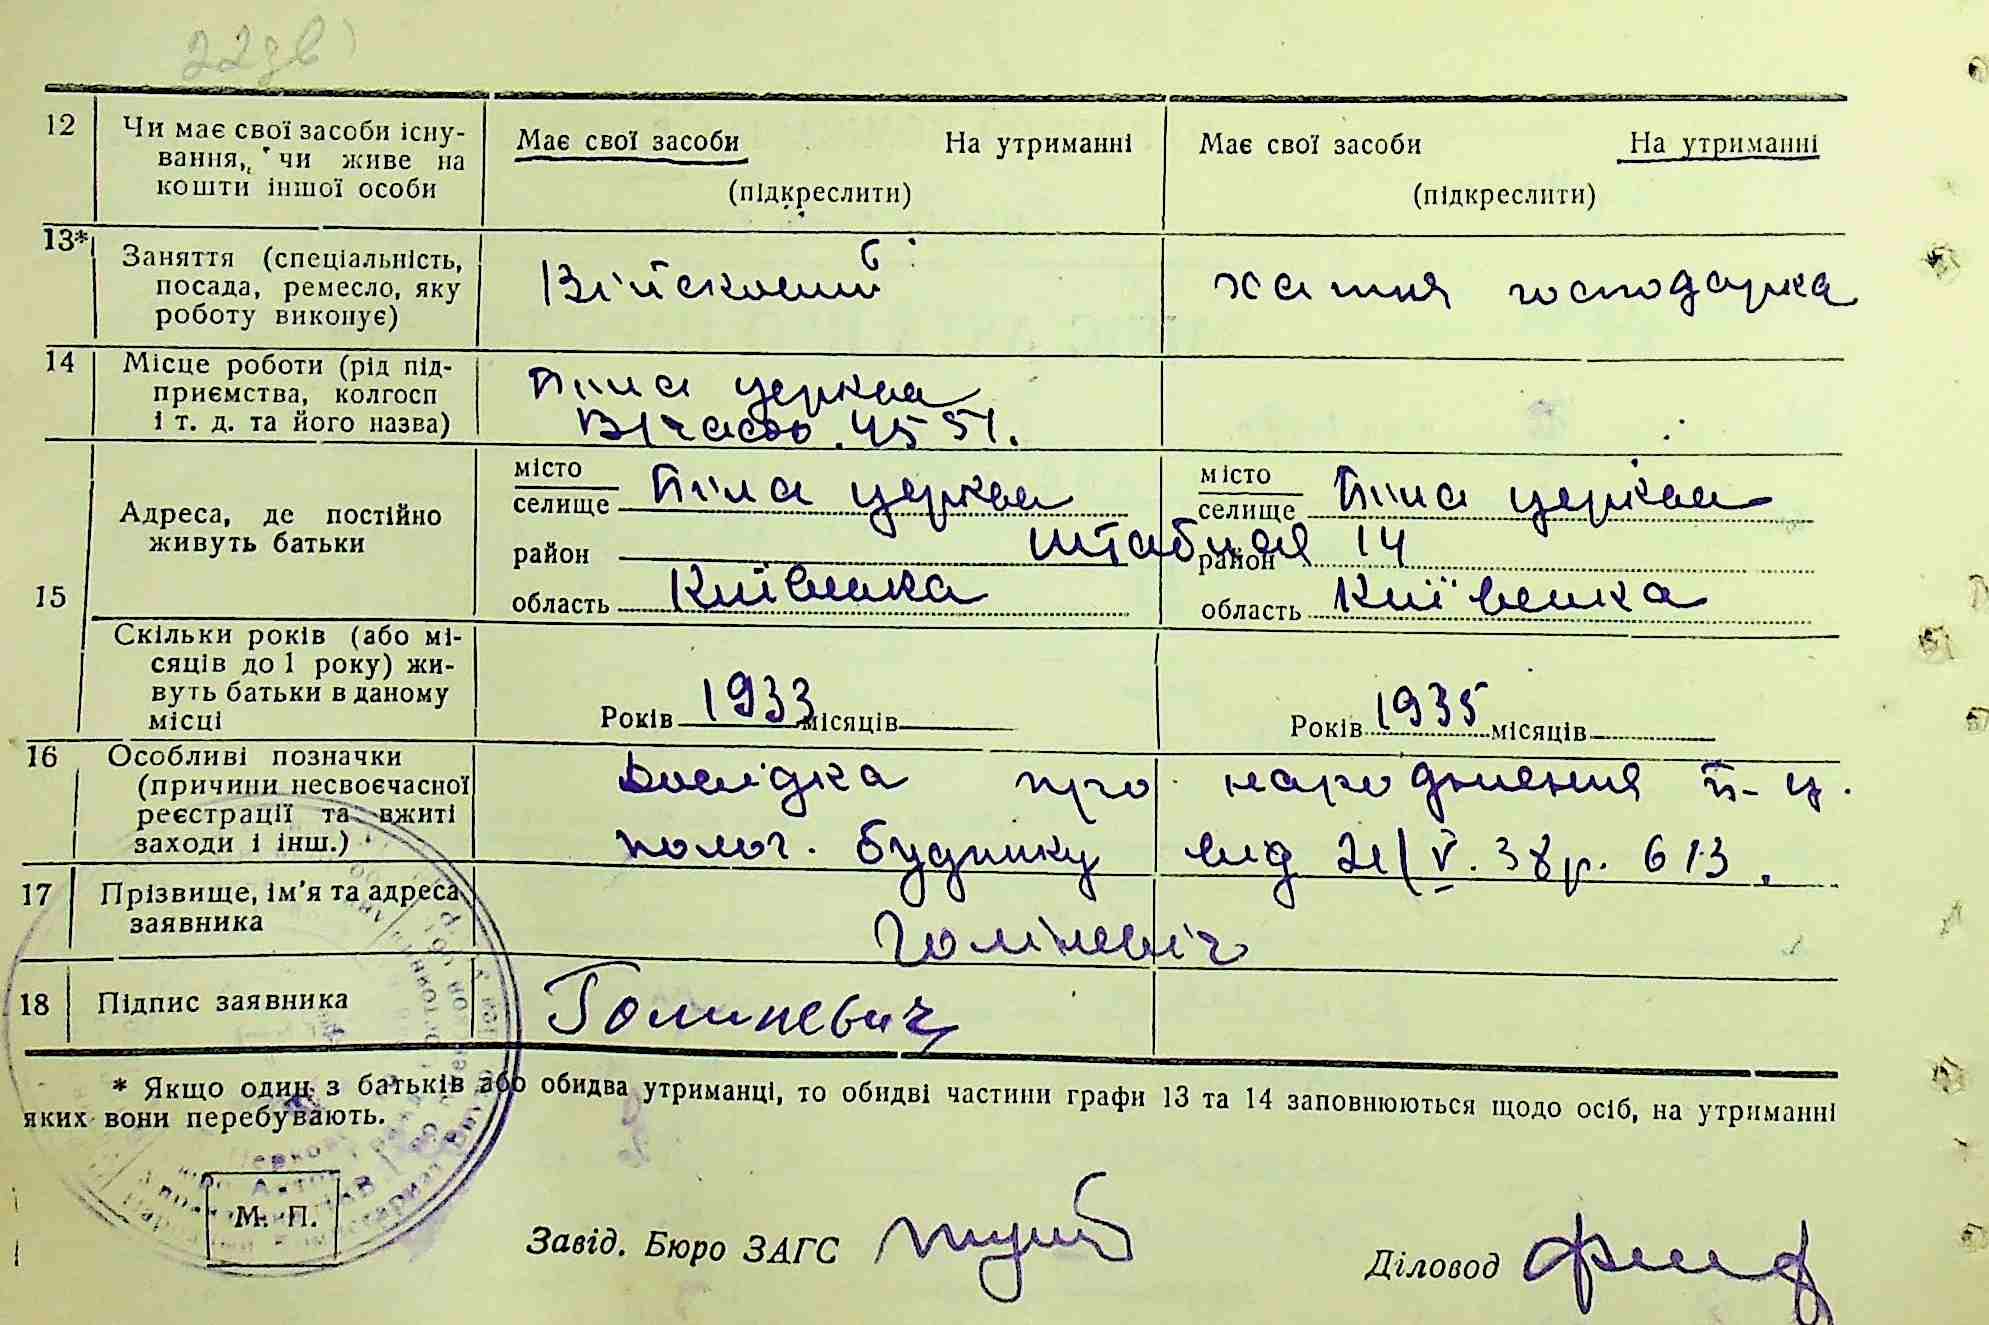 12 Чи має свої засоби існу-
вання, чи живе на
кошти іншої особи
Має свої засоби На утриманні
(підкреслити)
Має свої засоби На утриманні
(підкреслити)
13* Заняття (спеціальність,
посада, ремесло, яку
роботу виконує)
Війсковий
хатня господарка
14 Місце роботи (рід під-
приємства, колгосп
і т. д. та його назва)
Біла церква
В/часть 4551.
15 Адреса, де постійно
живуть батьки
місто
селище Біла церква
район
область Київська
місто
селище Біла церква
Штабная 14
район
область Київська
Скільки років (або мі-
сяців до 1 року) жи-
вуть батьки в даному
місці
Років 1933 місяців
Років 1935 місяців
16 Особливі позначки
(причини несвоєчасної
реєстрації та вжиті
заходи і інш.)
Довідка про народження Б-Ц.
полог. будинку від 21/V. 38р. 613.
17 Прізвище, ім'я та адреса
заявника
Голіневіч
18 Підпис заявника
Голиневич
* Якщо один з батьків або обидва утриманці, то обидві частини графи 13 та 14 заповнюються щодо осіб, на утриманні
яких вони перебувають.
М. П.
Завід. Бюро ЗАГС
Діловод